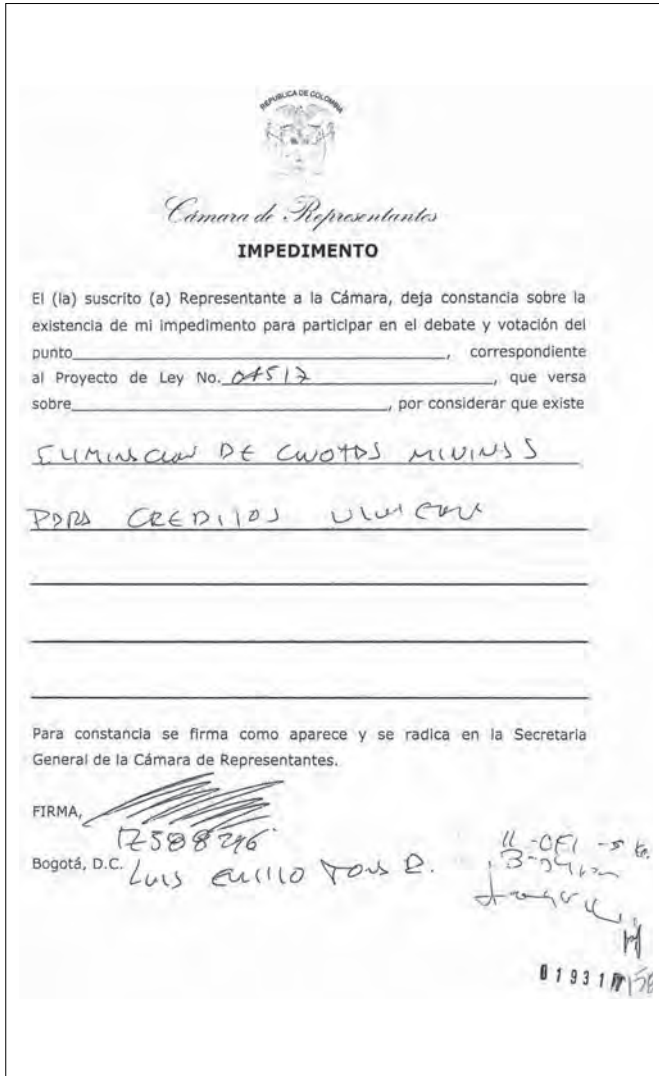 REPUBLICA DE COLOMBIA
Cámara de Representantes
IMPEDIMENTO
El (la) suscrito (a) Representante a la Cámara, deja constancia sobre la
existencia de mi impedimento para participar en el debate y votación del
punto____________________, correspondiente
al Proyecto de Ley No. 04517____________________, que versa
sobre____________________, por considerar que existe
DE CUOTAS MINIMAS
PARA CREDITOS
Para constancia se firma como aparece y se radica en la Secretaria
General de la Cámara de Representantes.
FIRMA,
12588296
Bogotá, D.C. LUIS EMILIO
01931